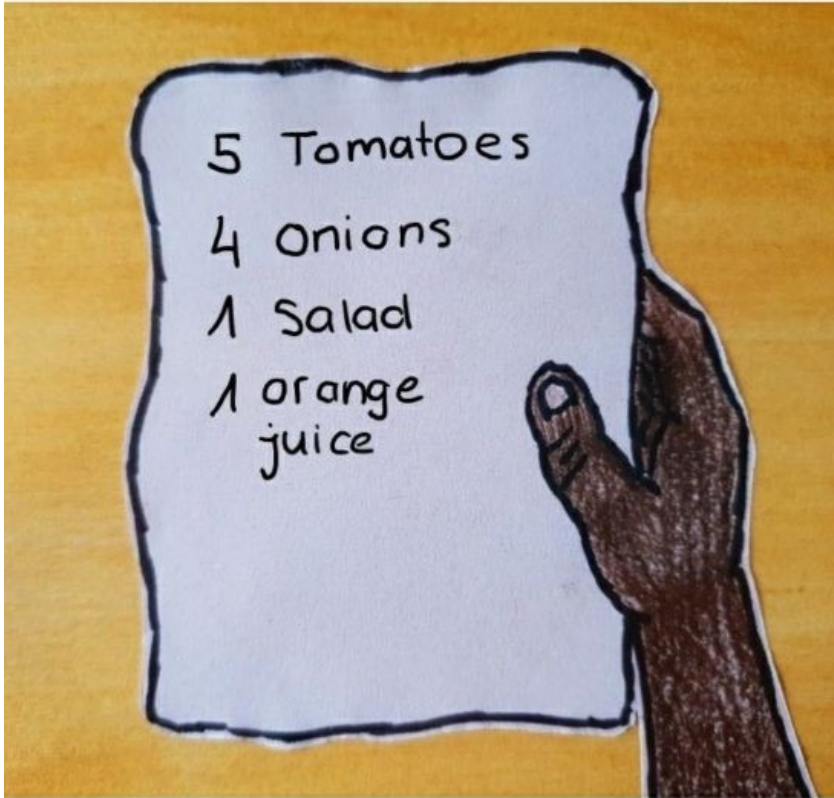 5 Tomatoes
4 onions
1 Salad
1 orange
juice